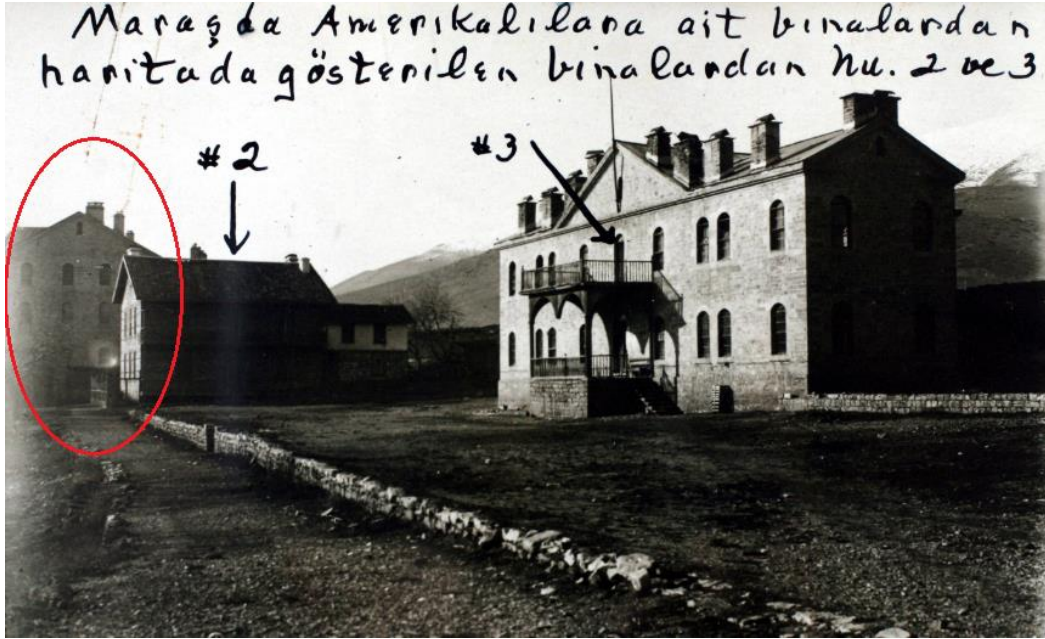 Maraşda Amerikalılara ait binalardan
haritada gösterilen binalardan Nu. 2 ve 3
#2
#3